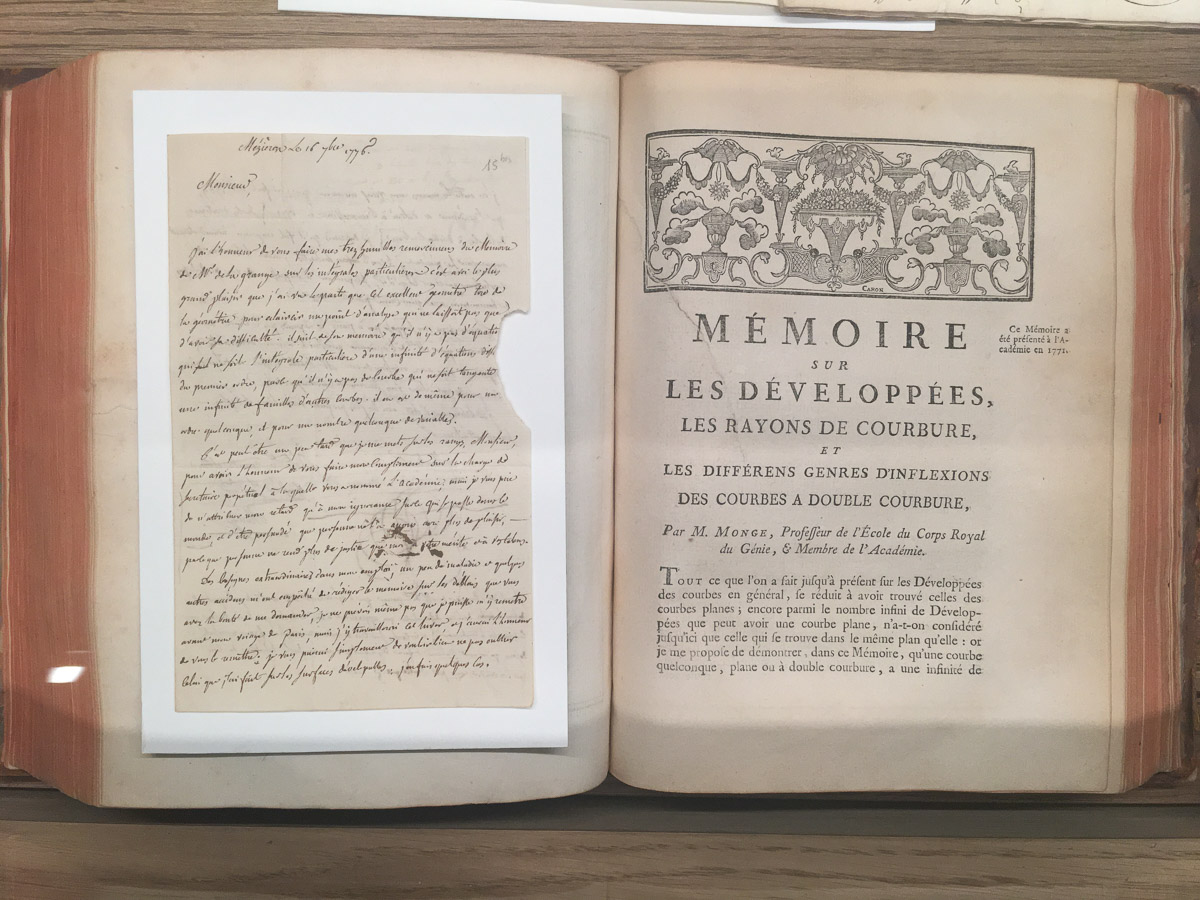 Mézieres le 16 7bre 1776.
15 bis
Monsieur,
j'ai l'honneur de vous faire mes tres humbles remerciemens du Memoire
de Mr. de la grange sur les intégrales particulieres c'est avec le plus
grand plaisir que j'ai vu le parti que cet excellent géometre tire de
la géométrie pour eclaircir un point d'analyse qui ne laissoit pas que
d'avoir sa difficulté. il suit de son memoire qu'il n'y a pas d'equation
qui ne soit l'intégrale particuliere d'une infinité d'équations diff.
du premier ordre, parce qu'il n'y a pas de courbe qui ne soit tangente
une infinité de familles d'autres courbes. il en est de même pour un
ordre quelconque, et pour un nombre quelconque de variables.
C'est peut être un peu tard que je me mets sur les rangs, Monsieur,
pour avoir l'honneur de vous faire mon compliment sur la charge de
Secretaire perpétuel à laquelle vous a nommé l'Academie; mais je vous prie
de n'attribuer mon retard qu'à mon ignorance sur ce qui se passe dans le
monde, et d'être persuadé que personne n'a appris avec plus de plaisir,
parce que personne ne rend plus de justice que moi à votre mérite et à vos talens.
Des besognes extraordinaires dans mon emploi un peu de maladie et quelques
autres accidens m'ont empêché de rédiger le mémoire sur les deblais que vous
avez la bonté de me demander, je ne prévois même pas que je puisse m'y remettre
avant mon voyage de Paris, mais j'y travaillerai cet hiver et j'aurai l'honneur
de vous le remettre. je vous prierai simplement de vouloir bien ne pas oublier
celui que j'ai fait sur les surfaces développables. j'en fais quelque cas.
CARON
MÉMOIRE
SUR
LES DÉVELOPPÉES,
LES RAYONS DE COURBURE,
ET
LES DIFFÉRENS GENRES D'INFLEXIONS
DES COURBES A DOUBLE COURBURE,
Ce Mémoire a
été présenté à l'A-
cadémie en 1771.
Par M. MONGE, Professeur de l'École du Corps Royal
du Génie, & Membre de l'Académie.
TOUT ce que l'on a fait jusqu'à présent sur les Développées
des courbes en général, se réduit à avoir trouvé celles des
courbes planes; encore parmi le nombre infini de Dévelop-
pées que peut avoir une courbe plane, n'a-t-on considéré
jusqu'ici que celle qui se trouve dans le même plan qu'elle: or
je me propose de démontrer, dans ce Mémoire, qu'une courbe
quelconque, plane ou à double courbure, a une infinité de